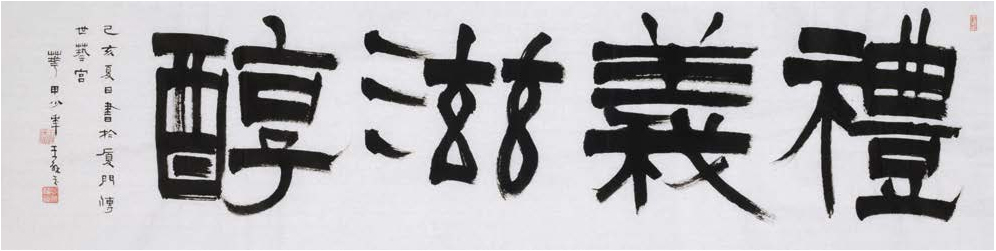 禮義滋醇
己亥夏日書於廈門傳
世藝宮
華甲少年